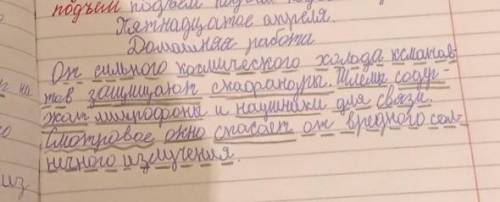 подъём подъём подъём
Пятнадцатое апреля.
Домашняя работа
От сильного космического холода космонав-
тов защищают скафандры. Шлемы содер-
жат микрофоны и наушники для связи.
Смотровое окно спасает от вредного сол-
ничного излучения.
на
го
из